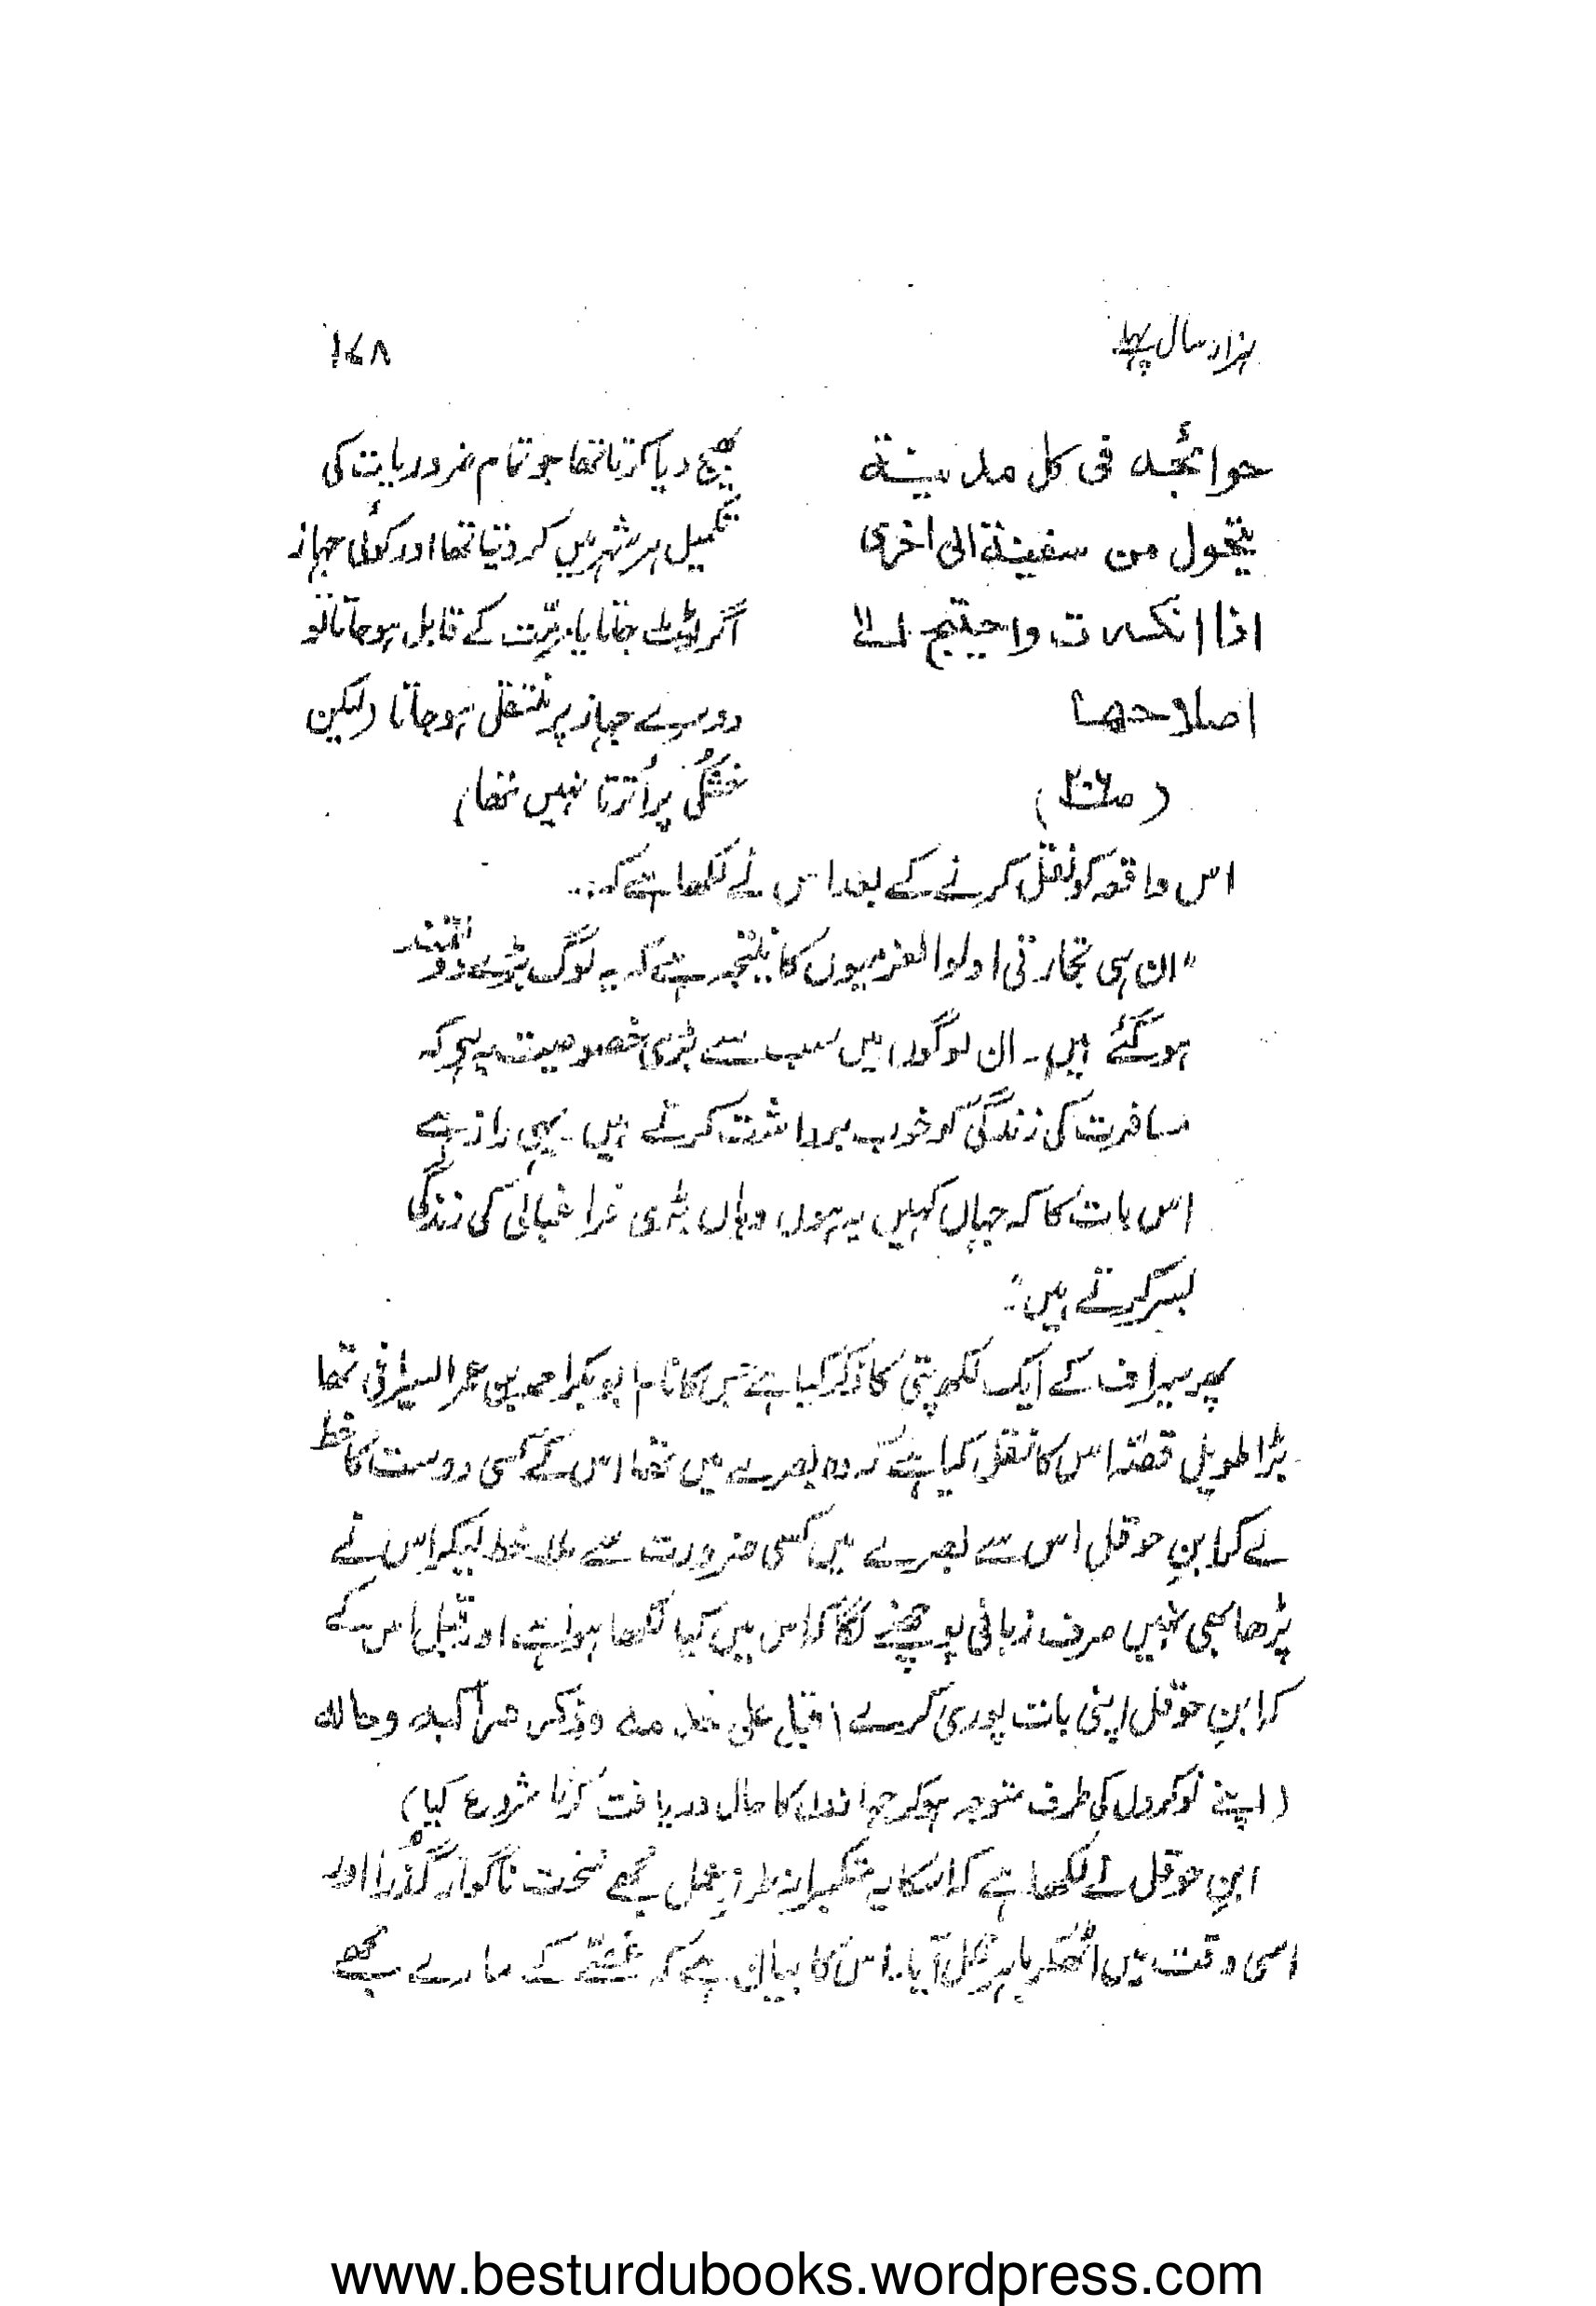 ہزار سال پہلے
۱۷۸
حوائجه فی کل مدینة
یتحول من سفینة الی اخری
اذا انکسرت واحتیج الی
اصلاحها
(ص۲۰۶)
بھیج دیا کرتا تھا جو تمام ضروریات کی
تکمیل ہر شہر میں کر دیتا تھا اور کوئی جہاز
اگر ٹوٹ جاتا یا مرمّت کے قابل ہو جاتا تو
دوسرے جہاز پر منتقل ہو جاتا (لیکن
خشکی پر اُترتا نہیں تھا)
اس واقعہ کو نقل کرنے کے بعد اس نے لکھا ہے کہ:۔
"ان ہی تجارتی اولوالعزمیوں کا نتیجہ ہے کہ یہ لوگ بڑے دولتمند
ہو گئے ہیں۔ ان لوگوں میں سب سے بڑی خصوصیت یہ ہے کہ
مسافرت کی زندگی کو خوب برداشت کرتے ہیں۔ یہی راز ہے
اس بات کا کہ جہاں کہیں یہ ہوں وہاں بڑی فراغبالی کی زندگی
بسر کرتے ہیں"۔
پھر سیراف کے ایک لکھ پتی کا ذکر کیا ہے جس کا نام ابوبکر احمد بن عمر السیرافی تھا
بڑا طویل قصّہ اس کا نقل کیا ہے کہ وہ بصرے میں تھا اس کے کسی دوست کا خط
لے کر ابنِ حوقل اس سے بصرے میں کسی ضرورت سے ملا۔ خط لیکر اس نے
پڑھا بھی نہیں صرف زبانی پوچھنے لگا کہ اس میں کیا لکھا ہوا ہے، اور قبل اس کے
کہ ابنِ حوقل اپنی بات پوری کرے اقبل علی خدمه وذکر مراکبه وحاله
(اپنے نوکروں کی طرف متوجہ ہو کر جہازوں کا حال دریافت کرنا شروع کیا)
ابنِ حوقل نے لکھا ہے کہ اسکا یہ متکبرانہ طرزِ عمل مجھے سخت ناگوار گُذرا اور
اسی وقت میں اُٹھکر باہر نکل آیا۔ اس کا بیان ہے کہ غصّے کے مارے مجھے
www.besturdubooks.wordpress.com